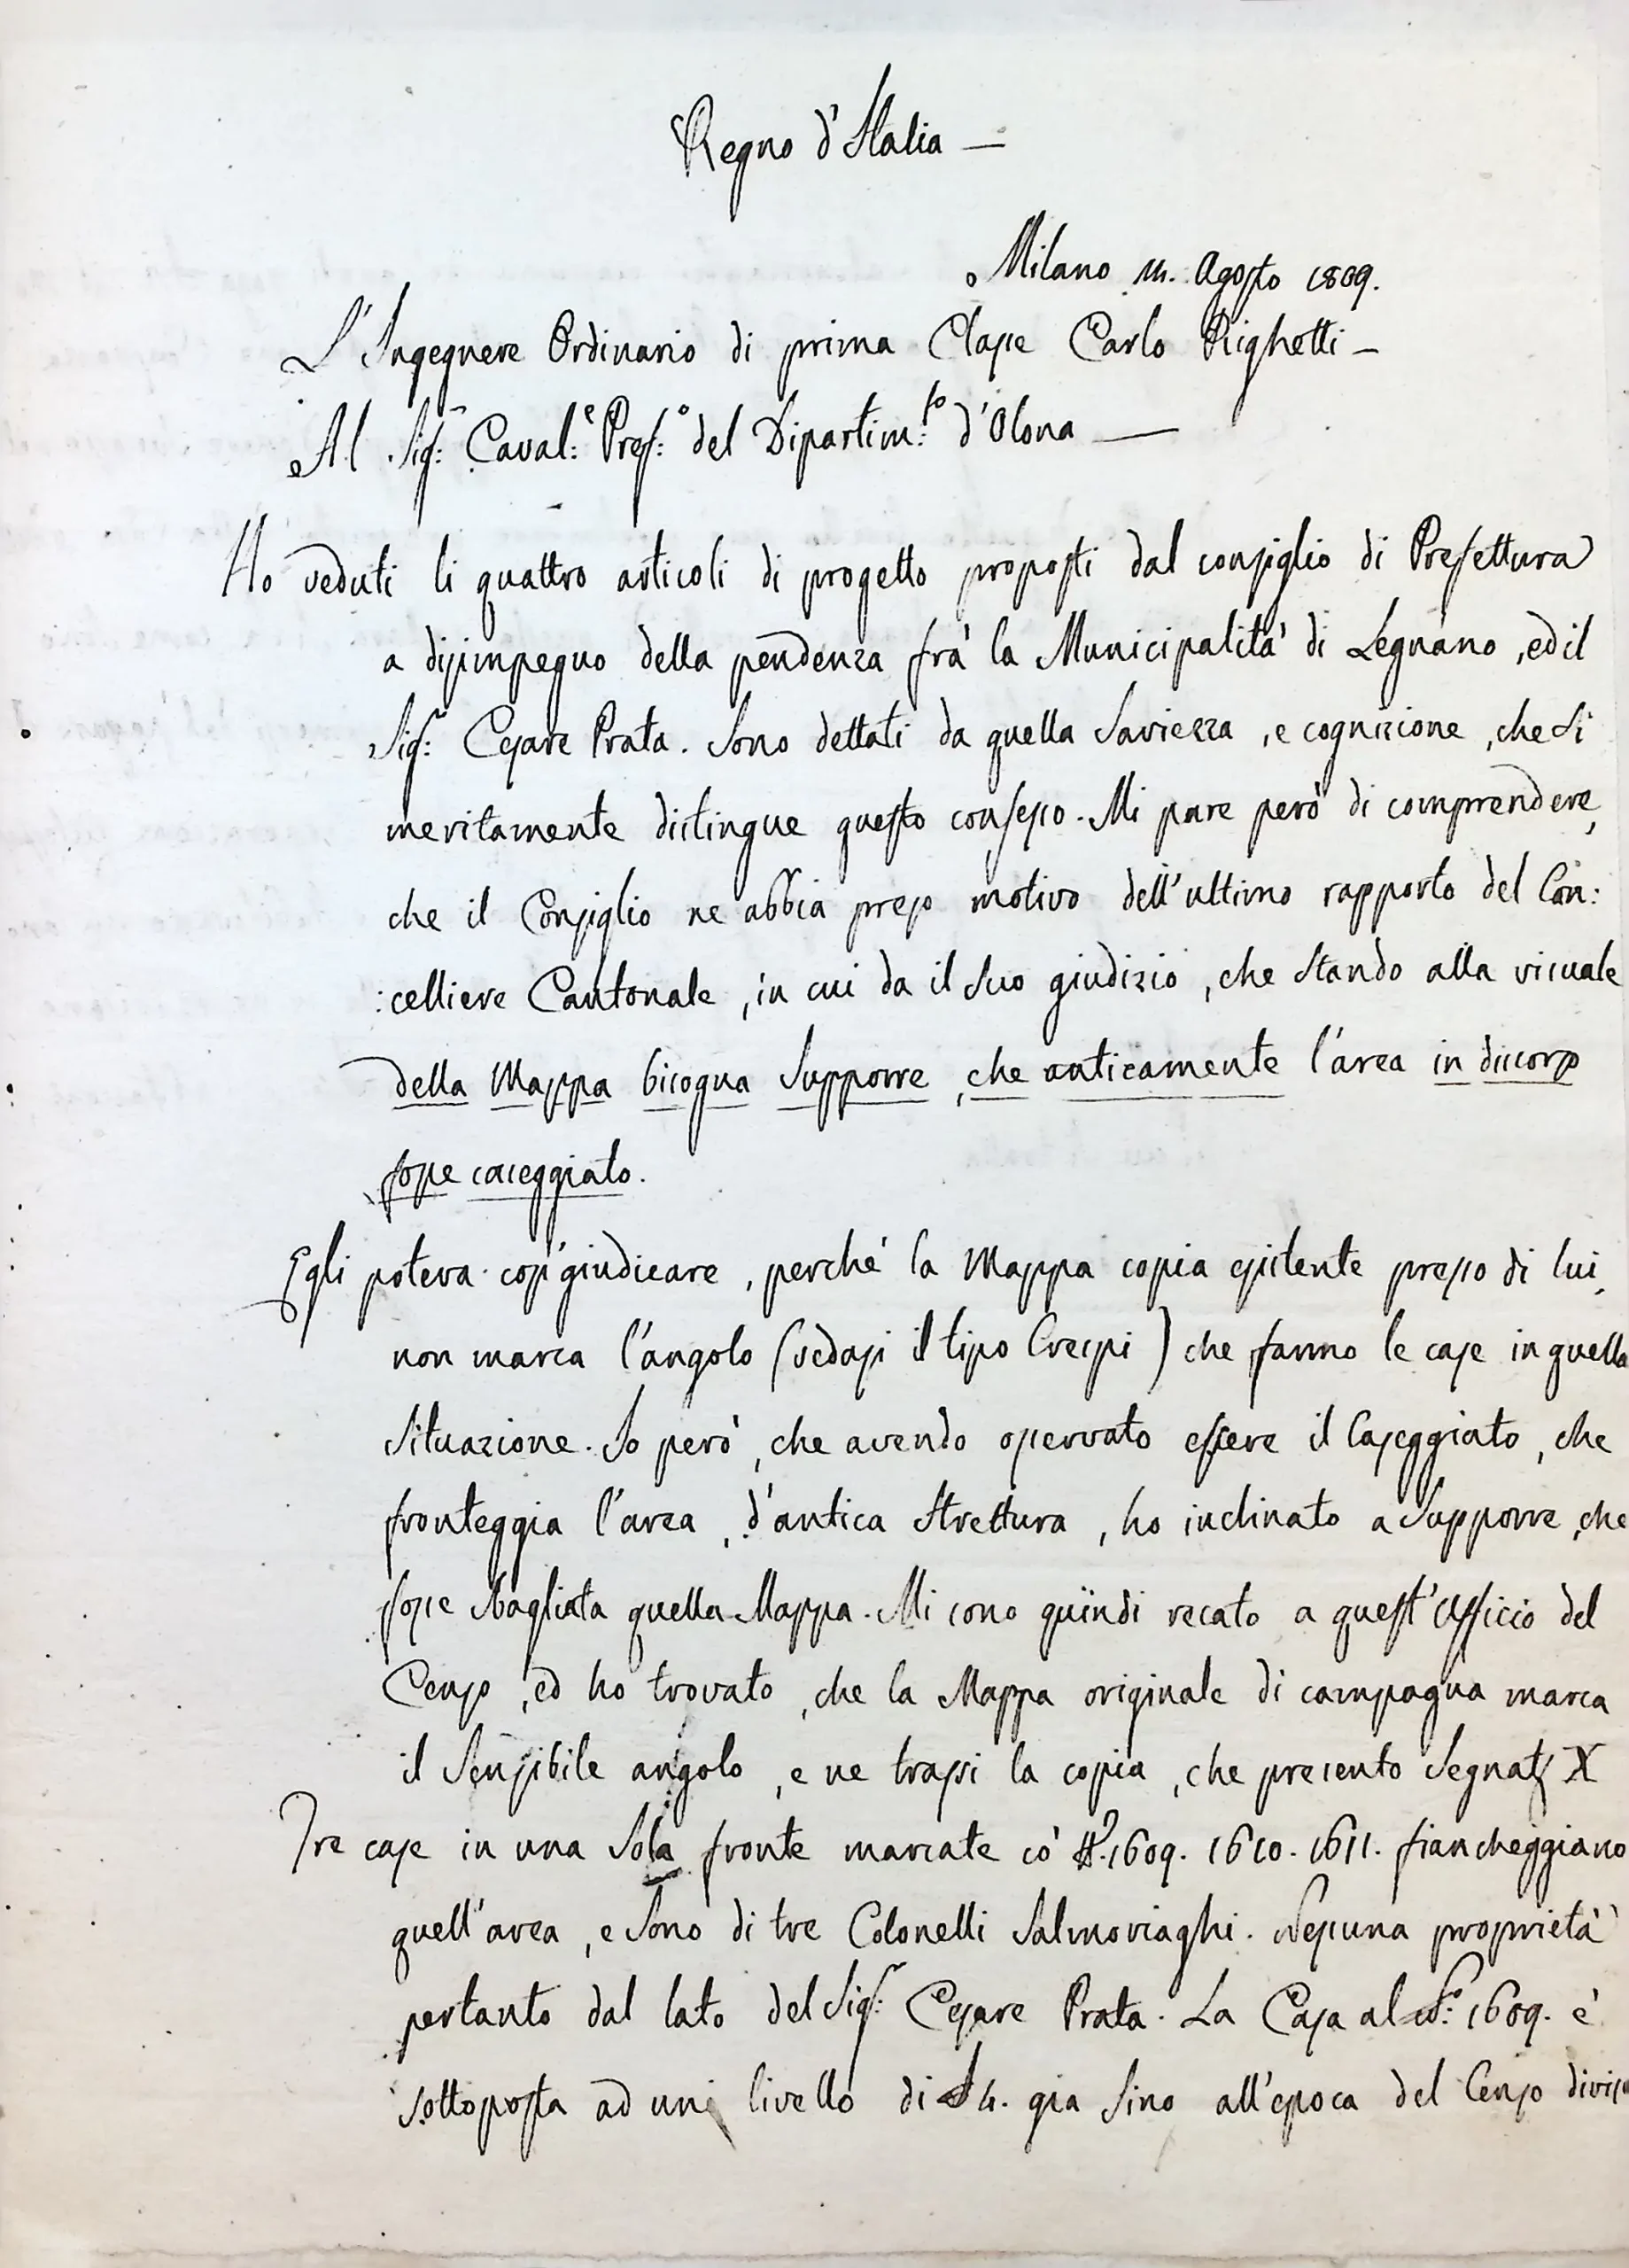 Regno d'Italia —
Milano 11. Agosto 1809.
L'Ingegnere Ordinario di prima Classe Carlo Righetti –
Al Sigr: Caval:e Pref:o del Dipartim:to d'Olona —
Ho veduti li quattro articoli di progetto proposti dal consiglio di Prefettura
a disimpegno della pendenza frà la Municipalità di Legnano, ed il
Sigr: Cesare Prata. Sono dettati da quella Saviezza, e cognizione, che Si
meritamente distingue questo consesso. Mi pare però di comprendere,
che il Consiglio ne abbia preso motivo dell'ultimo rapporto del Can:
:celliere Cantonale, in cui da il Suo giudizio, che Stando alla visuale
della Mappa bisogna Supporre, che anticamente l'area in discorso
fosse caseggiato.
Egli poteva così giudicare, perché la Mappa copia esistente presso di lui,
non marca l'angolo (vedasi il tipo Crespi) che fanno le case in quella
Situazione. Io però, che avendo osservato essere il Caseggiato, che
fronteggia l'area, d'antica Strettura, ho inclinato a Supporre, che
fosse sbagliata quella Mappa. Mi sono quindi recato a quest'Ufficio del
Censo, ed ho trovato, che la Mappa originale di campagna marca
il Sensibile angolo, e ne trassi la copia, che presento Segnata X
Tre case in una Sola fronte marcate co' N.i 1609. 1610. 1611. fiancheggiano
quell'area, e Sono di tre Colonelli Salmoriaghi. Nessuna proprietà
pertanto dal lato del Sigr: Cesare Prata. La Casa al N.o 1609. è
Sottoposta ad un livello di 4. gia Sino all'epoca del Censo diviso